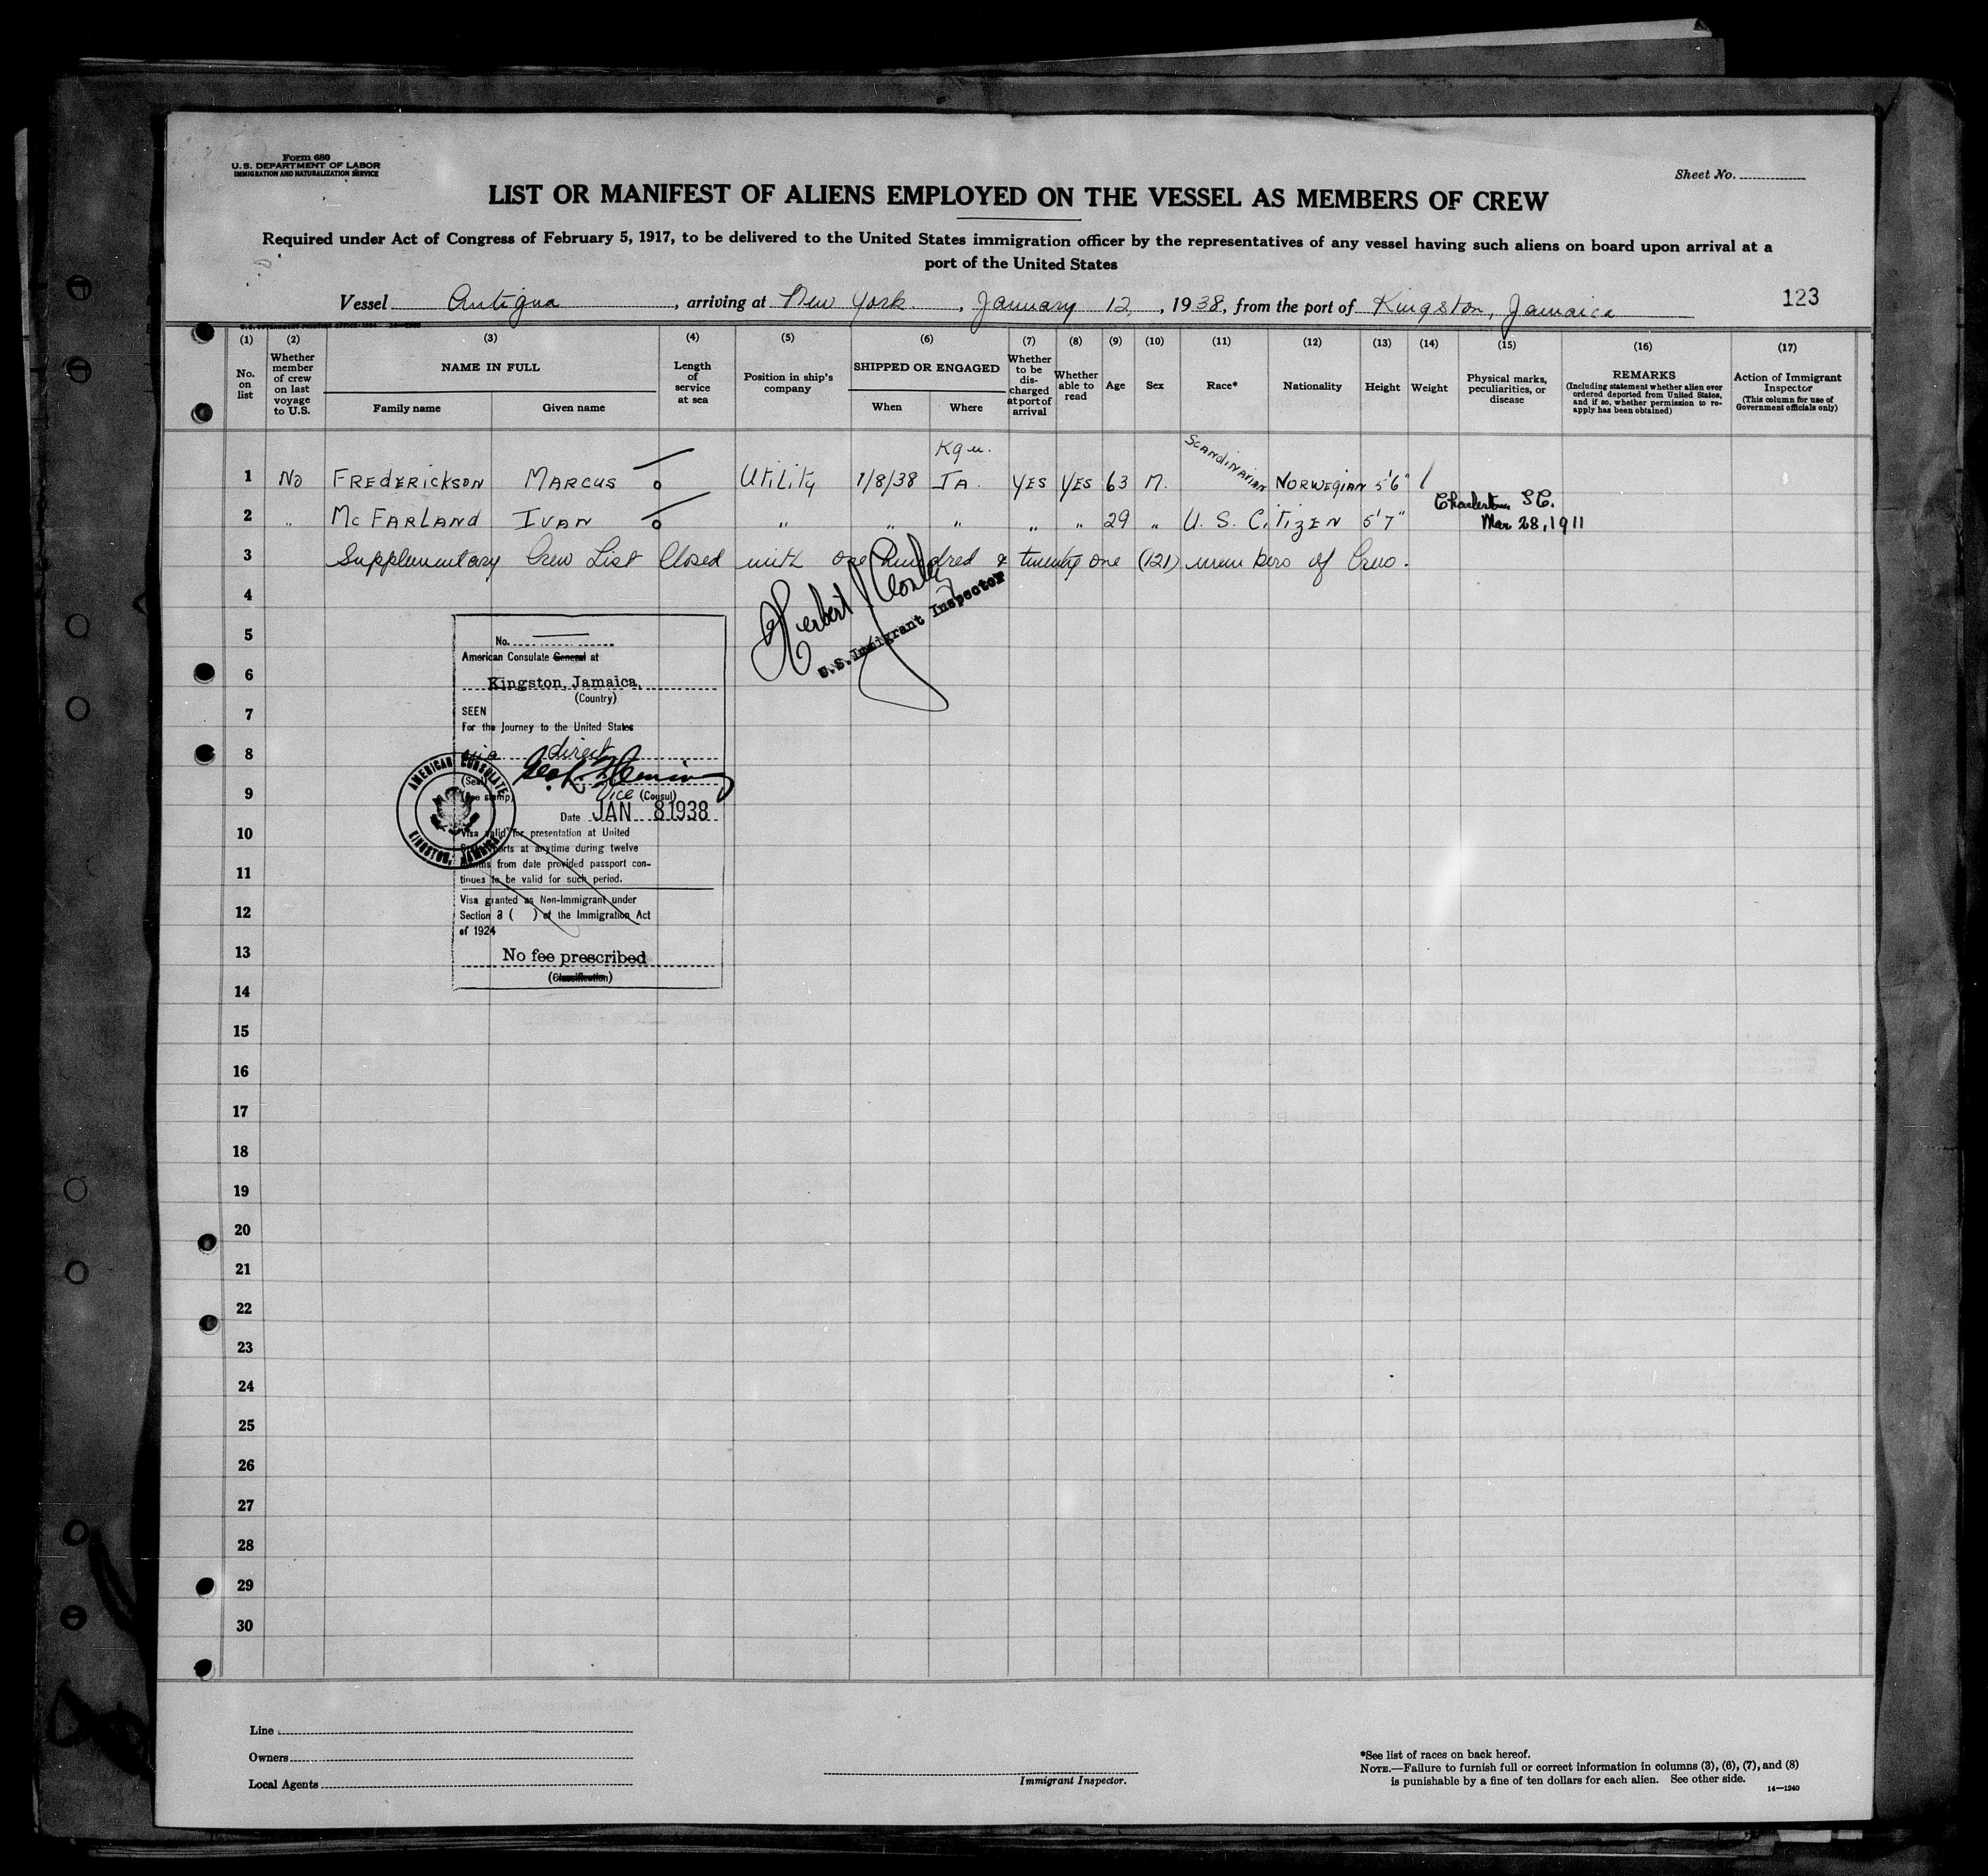 Form 680
U. S. DEPARTMENT OF LABOR
IMMIGRATION AND NATURALIZATION SERVICE
Sheet No.
LIST OR MANIFEST OF ALIENS EMPLOYED ON THE VESSEL AS MEMBERS OF CREW
Required under Act of Congress of February 5, 1917, to be delivered to the United States immigration officer by the representatives of any vessel having such aliens on board upon arrival at a
port of the United States
Vessel Antigua, arriving at New York, January 12, 1938, from the port of Kingston, Jamaica 123
U.S. GOVERNMENT PRINTING OFFICE
(1) No. on list
(2) Whether member of crew on last voyage to U.S.
(3) NAME IN FULL
Family name Given name
(4) Length of service at sea
(5) Position in ship's company
(6) SHIPPED OR ENGAGED
When Where
(7) Whether to be discharged at port of arrival
(8) Whether able to read
(9) Age
(10) Sex
(11) Race*
(12) Nationality
(13) Height
(14) Weight
(15) Physical marks, peculiarities, or disease
(16) REMARKS
(Including statement whether alien ever ordered deported from United States, and if so, whether permission to re-apply has been obtained)
(17) Action of Immigrant Inspector
(This column for use of Government officials only)
1 No FREDERICKSON MARCUS Utility 1/8/38 Kgn. JA. YES YES 63 M. SCANDINAVIAN NORWEGIAN 5'6"
2 " McFARLAND IVAN " " " " " 29 " U. S. CITIZEN 5'7" Charleston S.C.
Mar 28, 1911
3 Supplementary Crew List Closed with one hundred & twenty one (121) members of Crew.
4
Herbert
U.S. Immigrant Inspector
5
6
7
8
9
10
11
12
13
14
15
16
17
18
19
20
21
22
23
24
25
26
27
28
29
30
No.
American Consulate General at
Kingston, Jamaica,
(Country)
SEEN
For the Journey to the United States
via direct
(Seal)
(Fee stamp) Vice (Consul)
Date JAN 8 1938
Visa valid for presentation at United
States ports at anytime during twelve
months from date provided passport con-
tinues to be valid for such period.
Visa granted as Non-Immigrant under
Section 3 ( ) of the Immigration Act
of 1924
No fee prescribed
(Classification)
AMERICAN CONSULATE
KINGSTON, JAMAICA
Line
Owners
Local Agents
Immigrant Inspector.
*See list of races on back hereof.
NOTE.—Failure to furnish full or correct information in columns (3), (6), (7), and (8)
is punishable by a fine of ten dollars for each alien. See other side.
14—1240